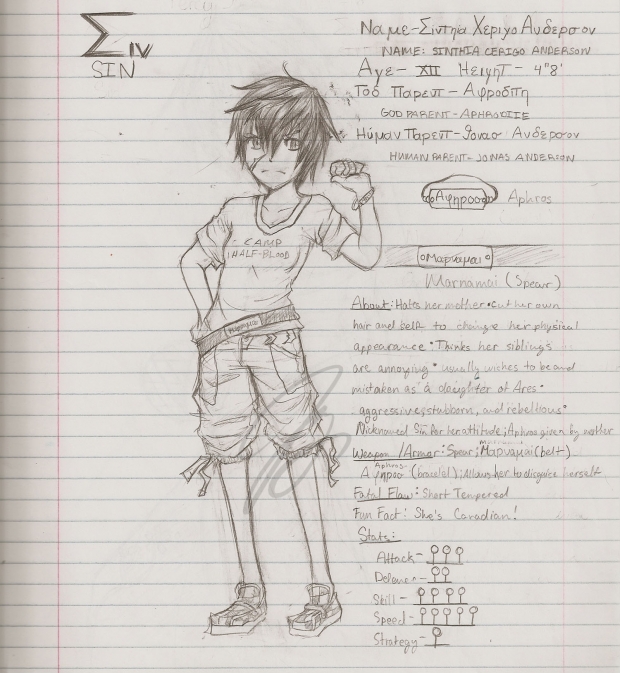 Σιν
SIN
Ναμε-Σιντηια Χεριγο Ανδερσον
NAME: SINTHIA CERIGO ANDERSON
Αγε- XII Ηειγητ - 4"8'
Γοδ Παρεντ - Αφροδιτη
GOD PARENT - APHRODITE
Ηύμαν Παρεντ - Ιονασ Ανδερσον
HUMAN PARENT - JONAS ANDERSON
Αφηροσ Aphros
Μαρναμαι
Marnamai (Spear)
CAMP
HALF-BLOOD
Μαρναμαι
About: Hates her mother • Cut her own
hair and self to change her physical
appearance • Thinks her siblings
are annoying • usually wishes to be and
mistaken as a daughter of Ares •
aggressive, stubborn, and rebellious •
Nicknamed Sin for her attitude; Aphros given by mother
Weapon/Armor: Spear; Marnamai Μαρναμαι (belt)
Aphros Αφηροσ (bracelet); Allows her to disguise herself
Fatal Flaw: Short Tempered
Fun Fact: She's Canadian!
Stats:
Attack -
Defence -
Skill -
Speed -
Strategy -